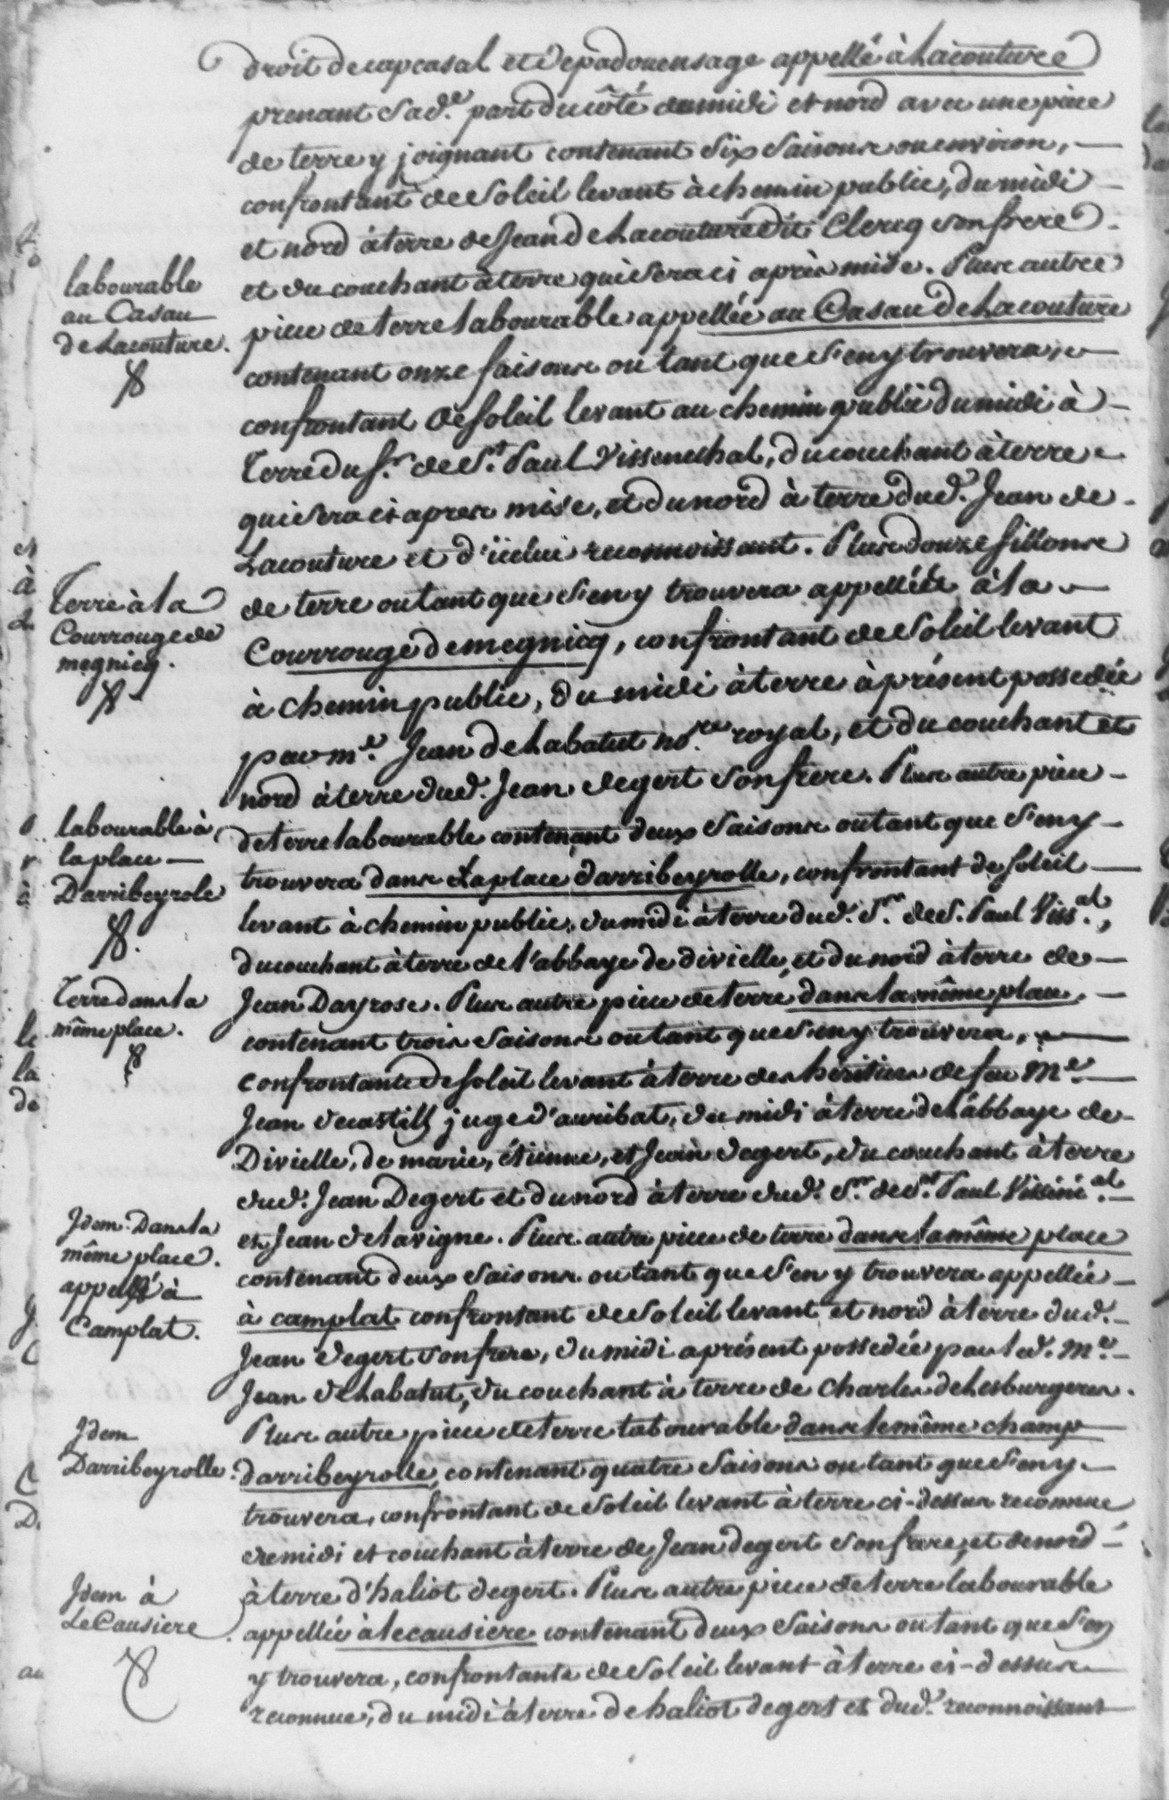 droit de capcasal et de padouensage appellé à Lacouture
prenant sa de. part du côté du midi et nord avec une piece
de terre y joignant contenant six saisons ou environ,
confrontant de soleil levant à chemin public, du midi
et nord à terre de Jean de Lacouture dit Clercq son frere
labourable
au Casau
de Lacouture.
et du couchant à terre qui sera ci après mise. Plus autre
piece de terre labourable appellée au Casau de Lacouture
contenant onze saisons ou tant que s'en y trouvera,
confrontant de soleil levant au chemin public du midi à
Terre du sr. de St. Paul Vissenechal, du couchant à terre
qui sera ci apres mise, et du nord à terre dud. Jean de
Lacouture et d'icelui reconnoissant. Plus douze sillons
Terre à la
Courrouge de
megnicq.
de terre ou tant que s'en y trouvera appellée à la
Courrouge de megnicq, confrontant de soleil levant
à chemin public, du midi à terre à présent possedée
par me. Jean de Labatut nore. royal, et du couchant et
nord à terre dud. Jean degert son frere. Plus autre piece
labourable à
la place
Darribeyrole
de terre labourable contenant deux saisons ou tant que s'en y
trouvera dans la place darribeyrolle, confrontant de soleil
levant à chemin public, du midi à terre dud. Sr. de S. Paul Viss.al,
du couchant à terre de l'abbaye de divielle, et du nord à terre de
Terre dans la
même place.
Jean Dayrose. Plus autre piece de terre dans la même place,
contenant trois saisons ou tant que s'en y trouvera,
confrontante de soleil levant à terre des héritiers de feu Me.
Jean ducastill juge d'auribat, du midi à terre de l'abbaye de
Divielle, de marie, étienne, et Jean degert, du couchant à terre
dud. Jean Degert et du nord à terre dud. Sr. de St. Paul Vissiné.al
Idem. Dans la
même place.
appellé à
Camplat.
et Jean de lavigne. Plus autre piece de terre dans la même place
contenant deux saisons ou tant que s'en y trouvera appellée
à camplat confrontant de soleil levant et nord à terre dud.
Jean degert son frere, du midi à présent possedée par led. Me.
Jean de Labatut, du couchant à terre de Charles de Lesburgeres.
Idem
Darribeyrolle.
Plus autre piece de terre labourable dans le même champ
darribeyrolle, contenant quatre saisons ou tant que s'en y
trouvera, confrontant de soleil levant à terre ci-dessus reconnue
de midi et couchant à terre de Jean degert son frere, et de nord
Idem à
LeCausiere.
à terre d'haliot degert. Plus autre piece de terre labourable
appellée à lecausiere contenant deux saisons ou tant que s'en
y trouvera, confrontante de soleil levant à terre ci-dessus
reconnue, du midi à terre de haliot degert et dud. reconnoissant